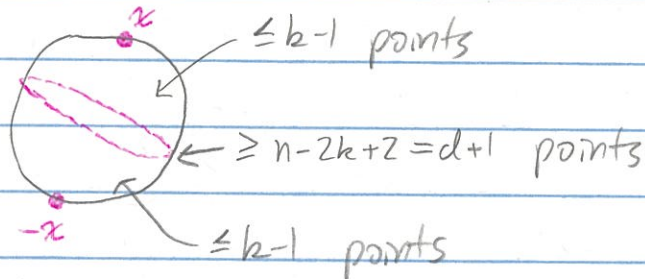 x
≤ k-1 points
≥ n-2k+2 = d+1 points
-x
≤ k-1 points